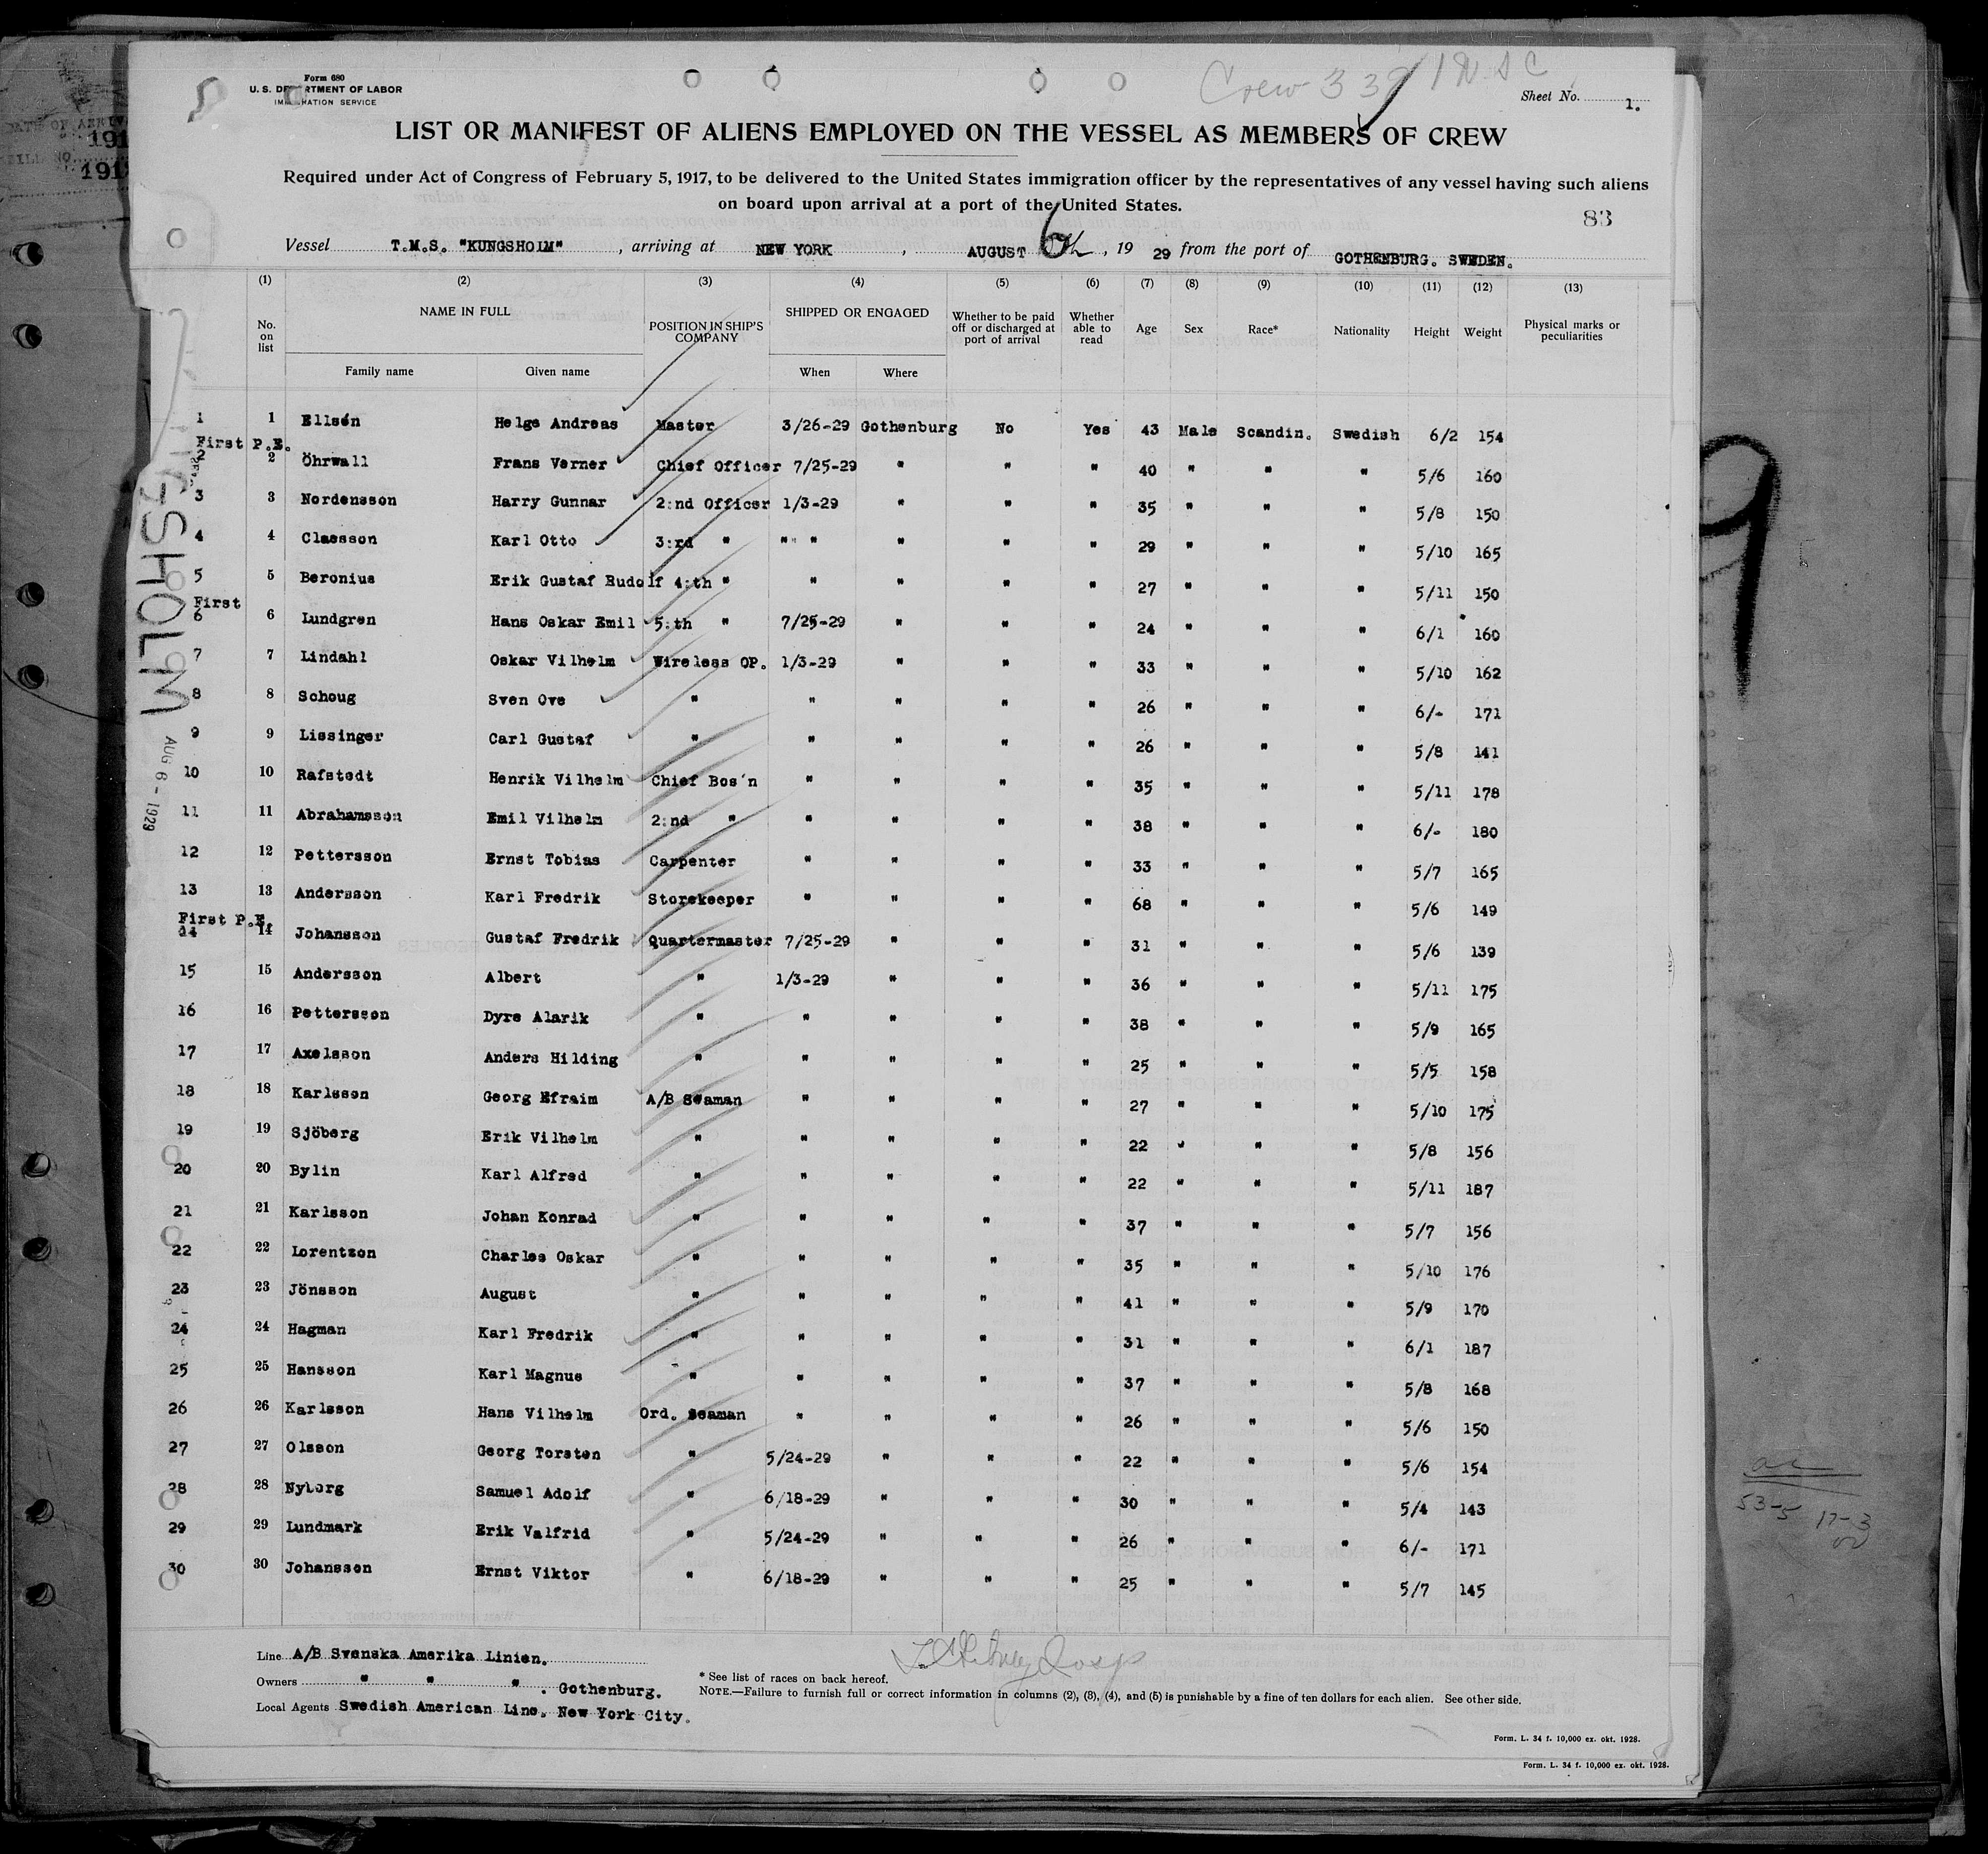 Form 680
U. S. DEPARTMENT OF LABOR
IMMIGRATION SERVICE
Crew 33
Sheet No. 1.
LIST OR MANIFEST OF ALIENS EMPLOYED ON THE VESSEL AS MEMBERS OF CREW
Required under Act of Congress of February 5, 1917, to be delivered to the United States immigration officer by the representatives of any vessel having such aliens
on board upon arrival at a port of the United States.
83
Vessel T.M.S. "KUNGSHOLM", arriving at NEW YORK, AUGUST 6th, 19 29 from the port of GOTHENBURG. SWEDEN.
(1) (2) (3) (4) (5) (6) (7) (8) (9) (10) (11) (12) (13)
No. on list NAME IN FULL POSITION IN SHIP'S COMPANY SHIPPED OR ENGAGED Whether to be paid off or discharged at port of arrival Whether able to read Age Sex Race* Nationality Height Weight Physical marks or peculiarities
Family name Given name When Where
1 1 Ellsén Helge Andreas Master 3/26-29 Gothenburg No Yes 43 Male Scandin. Swedish 6/2 154
First P.E.
2 2 Öhrwall Frans Verner Chief Officer 7/25-29 " " " 40 " " " 5/6 160
3 3 Nordensson Harry Gunnar 2:nd Officer 1/3-29 " " " 35 " " " 5/8 150
4 4 Claesson Karl Otto 3:rd " " " " " " " 29 " " " 5/10 165
5 5 Beronius Erik Gustaf Rudolf 4:th " " " " " 27 " " " 5/11 150
First
6 6 Lundgren Hans Oskar Emil 5:th " 7/25-29 " " " 24 " " " 6/1 160
7 7 Lindahl Oskar Vilhelm Wireless OP. 1/3-29 " " " 33 " " " 5/10 162
8 8 Schoug Sven Ove " " " " " 26 " " " 6/- 171
9 9 Lissinger Carl Gustaf " " " " " 26 " " " 5/8 141
10 10 Rafstedt Henrik Vilhelm Chief Bos'n " " " " 35 " " " 5/11 178
11 11 Abrahamsson Emil Vilhelm 2:nd " " " " " 38 " " " 6/- 180
12 12 Pettersson Ernst Tobias Carpenter " " " " 33 " " " 5/7 165
13 13 Andersson Karl Fredrik Storekeeper " " " " 68 " " " 5/6 149
First P.E.
14 14 Johansson Gustaf Fredrik Quartermaster 7/25-29 " " " 31 " " " 5/6 139
15 15 Andersson Albert " 1/3-29 " " " 36 " " " 5/11 175
16 16 Pettersson Dyre Alarik " " " " " 38 " " " 5/9 165
17 17 Axelsson Anders Hilding " " " " " 25 " " " 5/5 158
18 18 Karlsson Georg Efraim A/B Seaman " " " " 27 " " " 5/10 175
19 19 Sjöberg Erik Vilhelm " " " " " 22 " " " 5/8 156
20 20 Bylin Karl Alfred " " " " " 22 " " " 5/11 187
21 21 Karlsson Johan Konrad " " " " " 37 " " " 5/7 156
22 22 Lorentzon Charles Oskar " " " " " 35 " " " 5/10 176
23 23 Jönsson August " " " " " 41 " " " 5/9 170
24 24 Hagman Karl Fredrik " " " " " 31 " " " 6/1 187
25 25 Hansson Karl Magnus " " " " " 37 " " " 5/8 168
26 26 Karlsson Hans Vilhelm Ord. Seaman " " " " 26 " " " 5/6 150
27 27 Olsson Georg Torsten " 5/24-29 " " " 22 " " " 5/6 154
28 28 Nyborg Samuel Adolf " 6/18-29 " " " 30 " " " 5/4 143
29 29 Lundmark Erik Valfrid " 5/24-29 " " " 26 " " " 6/- 171
30 30 Johansson Ernst Viktor " 6/18-29 " " " 25 " " " 5/7 145
Line A/B Svenska Amerika Linien.
Owners " " " . Gothenburg.
Local Agents Swedish American Line, New York City.
* See list of races on back hereof.
NOTE.—Failure to furnish full or correct information in columns (2), (3), (4), and (5) is punishable by a fine of ten dollars for each alien. See other side.
Form. L. 34 f. 10,000 ex. okt. 1928.
Form. L. 34 f. 10,000 ex. okt. 1928.
KUNGSHOLM
AUG 6 - 1929
9
53-5
17-3